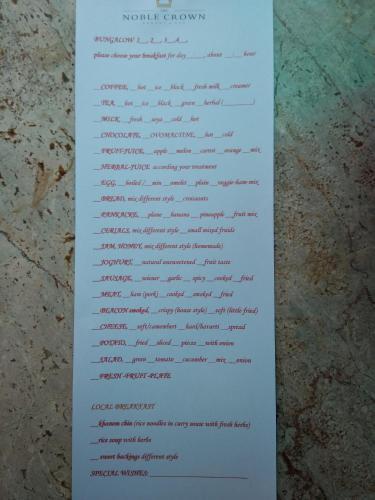 NOBLE CROWN
BUNGALOW 1__, 2__, 3__4__,
please choose your breakfast for day ______, about ___:___ hour
__COFFEE, __hot __ice __black __fresh milk __creamer
__TEA, __hot __ice __black __green __herbal (__________)
__MILK, __fresh __soya __cold __hot
__CHOCOLATE, __OVOMALTINE, __hot __cold
__FRUIT-JUICE, __apple __melon __carrot __orange __mix
__HERBAL-JUICE according your treatment
__EGG, __boiled /__min __omelet __plain __veggie-ham-mix
__BREAD, mix different style __croissants
__PANKACKE, __plane __banana __pineapple __fruit mix
__CERIALS, mix different style __small mixed fruids
__JAM, HONEY, mix different style (homemade)
__JOGHURT, __natural unsweetened __fruit taste
__SAUSAGE, __wiener __garlic __spicy __cooked __fried
__MEAT, __ham (pork) __cooked __smoked __fried
__BEACON smoked, __crispy (house style) __soft (little fried)
__CHEESE, __soft/camembert __hard/havarti __spread
__POTATO, __fried __sliced __pieces __with onion
__SALAD, __green __tomato __cucumber __mix __onion
__FRESH-FRUIT-PLATE
LOCAL BREAKFAST
__khanom chin (rice noodles in curry souse with fresh herbs)
__rice soup with herbs
__sweet backings different style
SPECIAL WISHES: ______________________